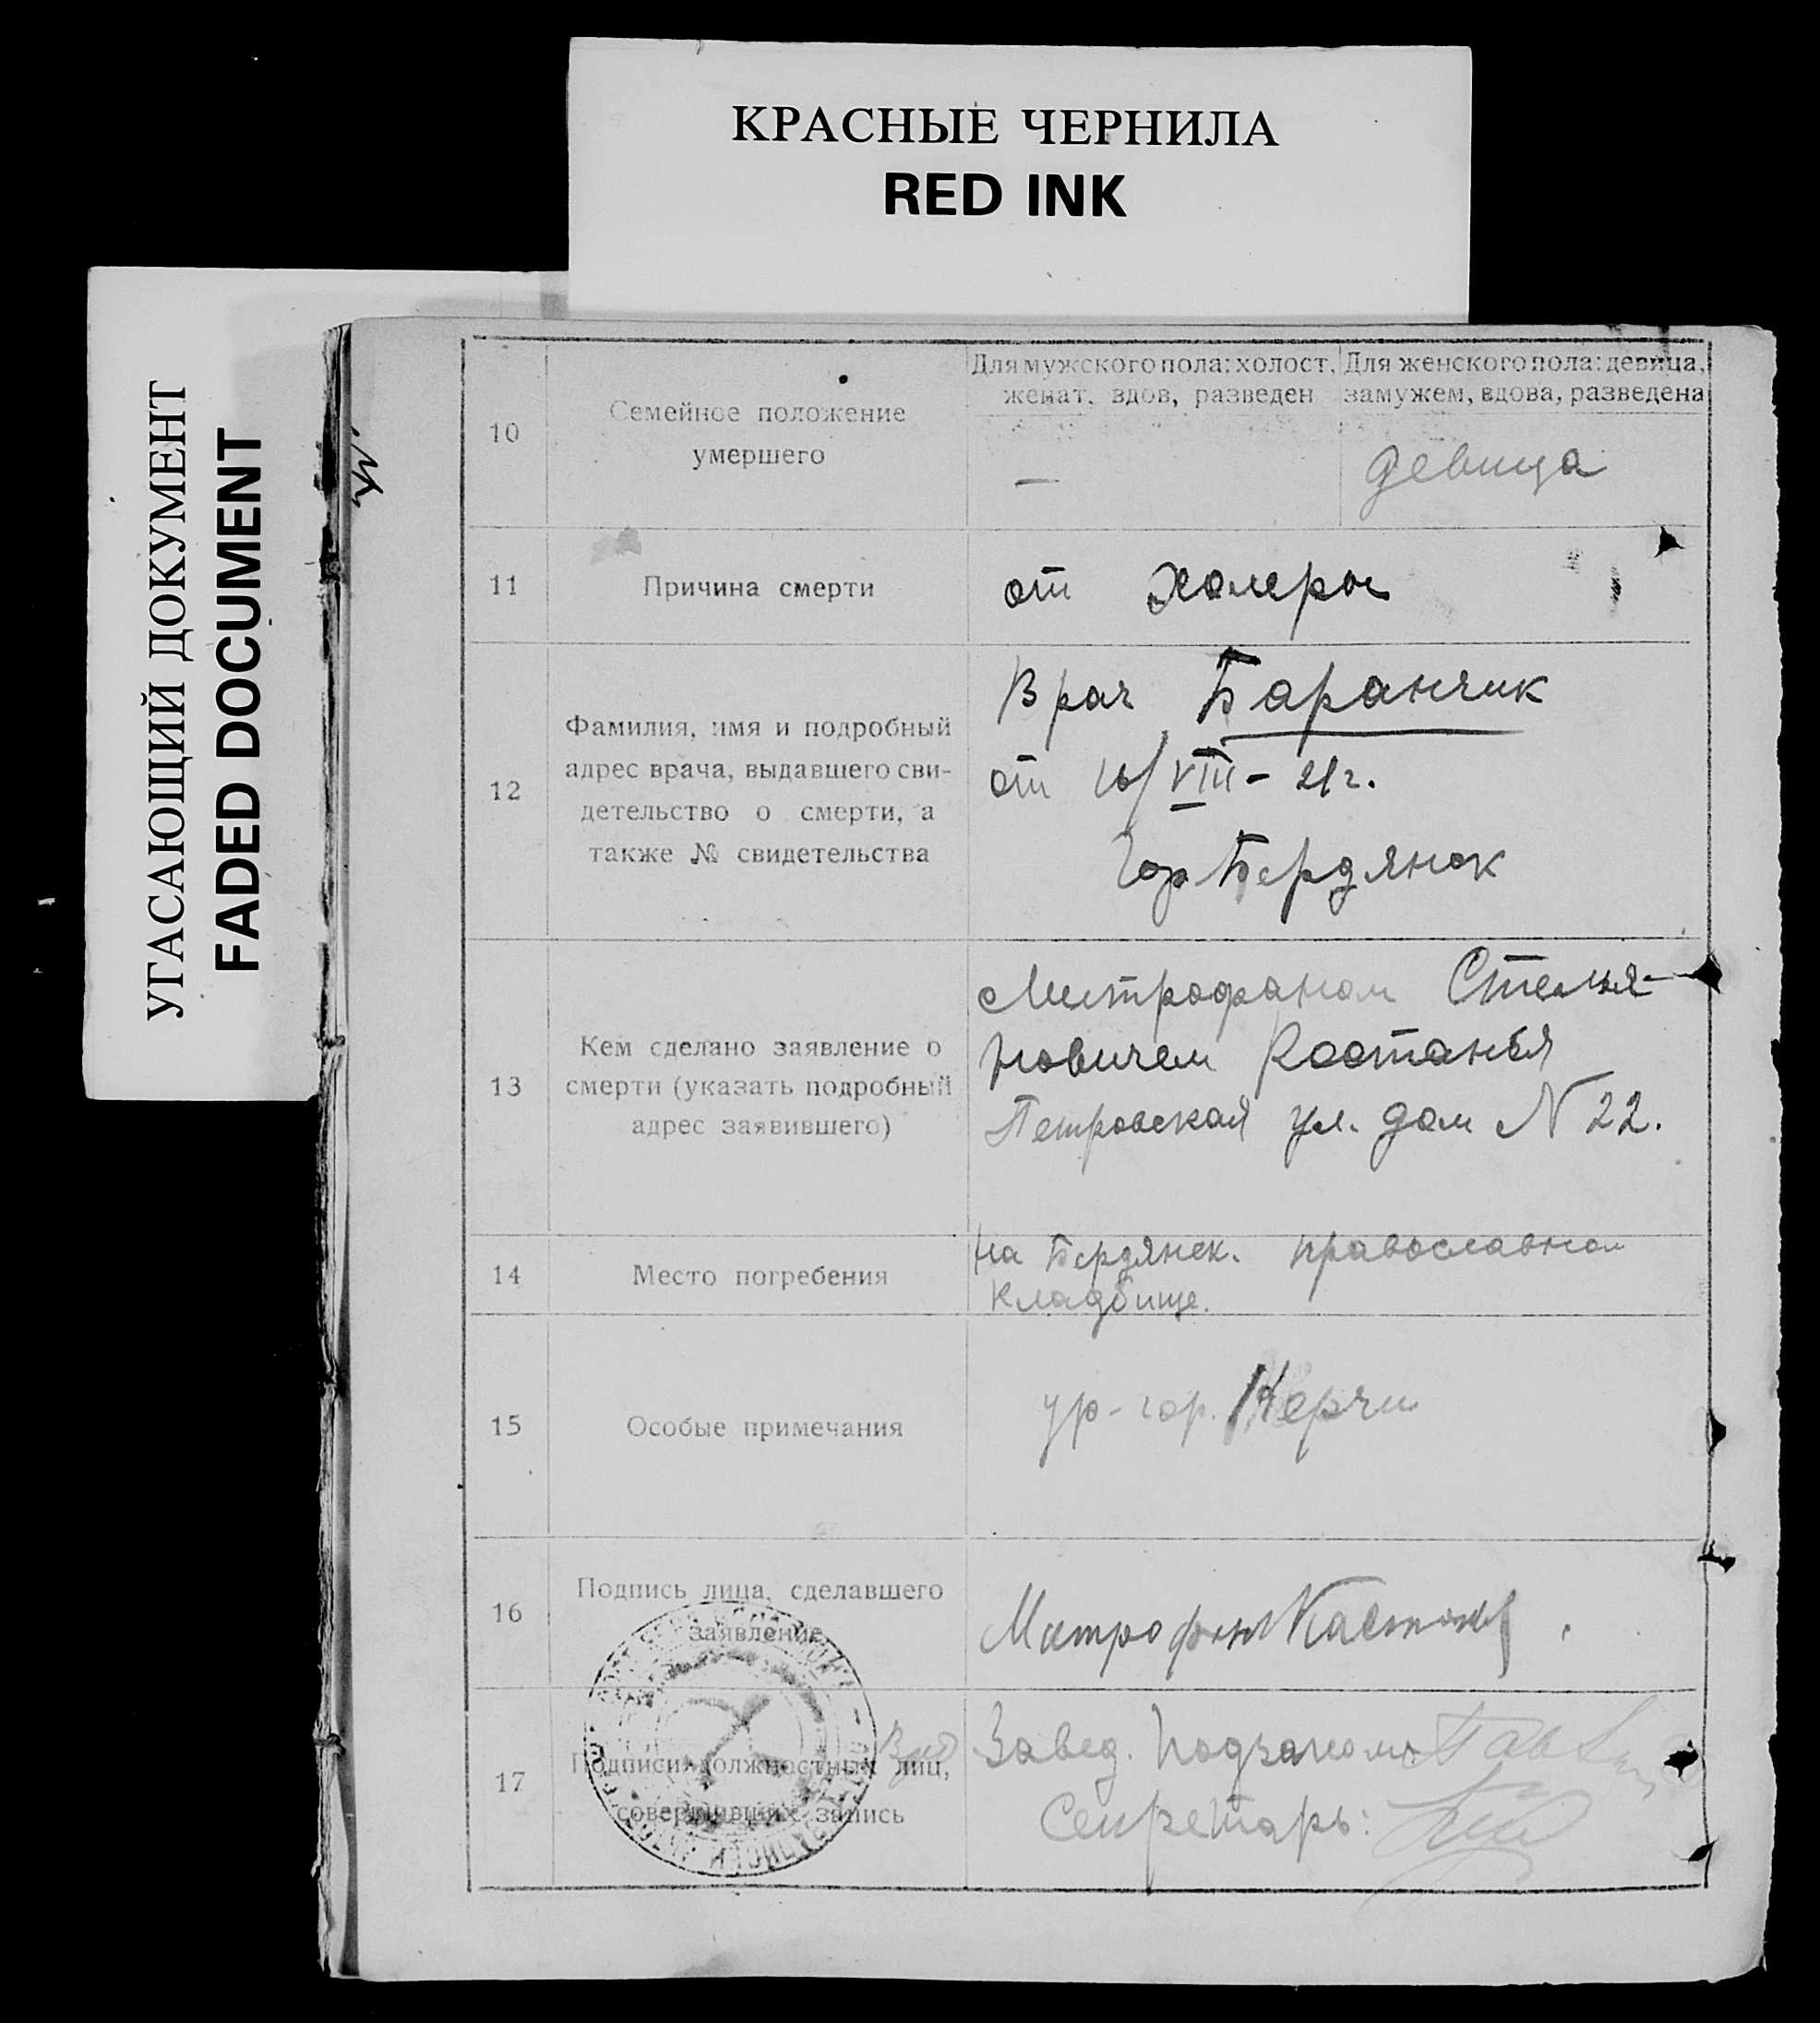 КРАСНЫЕ ЧЕРНИЛА
RED INK
УГАСАЮЩИЙ ДОКУМЕНТ
FADED DOCUMENT
10
Семейное положение
умершего
Для мужского пола: холост,
женат, вдов, разведен
—
Для женского пола: девица,
замужем, вдова, разведена
девица
11
Причина смерти
от холеры
12
Фамилия, имя и подробный
адрес врача, выдавшего сви-
детельство о смерти, а
также № свидетельства
Врач Баранчик
от 16/VIII – 21 г.
Гор Бердянск
13
Кем сделано заявление о
смерти (указать подробный
адрес заявившего)
Митрофаном Стелья-
новичем Костанья
Петровская ул. дом N 22.
14
Место погребения
на Бердянск. православном
кладбище.
15
Особые примечания
ур- гор. Керчи
16
Подпись лица, сделавшего
заявление
Митрофан
17
Подписи должностных лиц,
совершивших запись
Завед.
Секретарь: